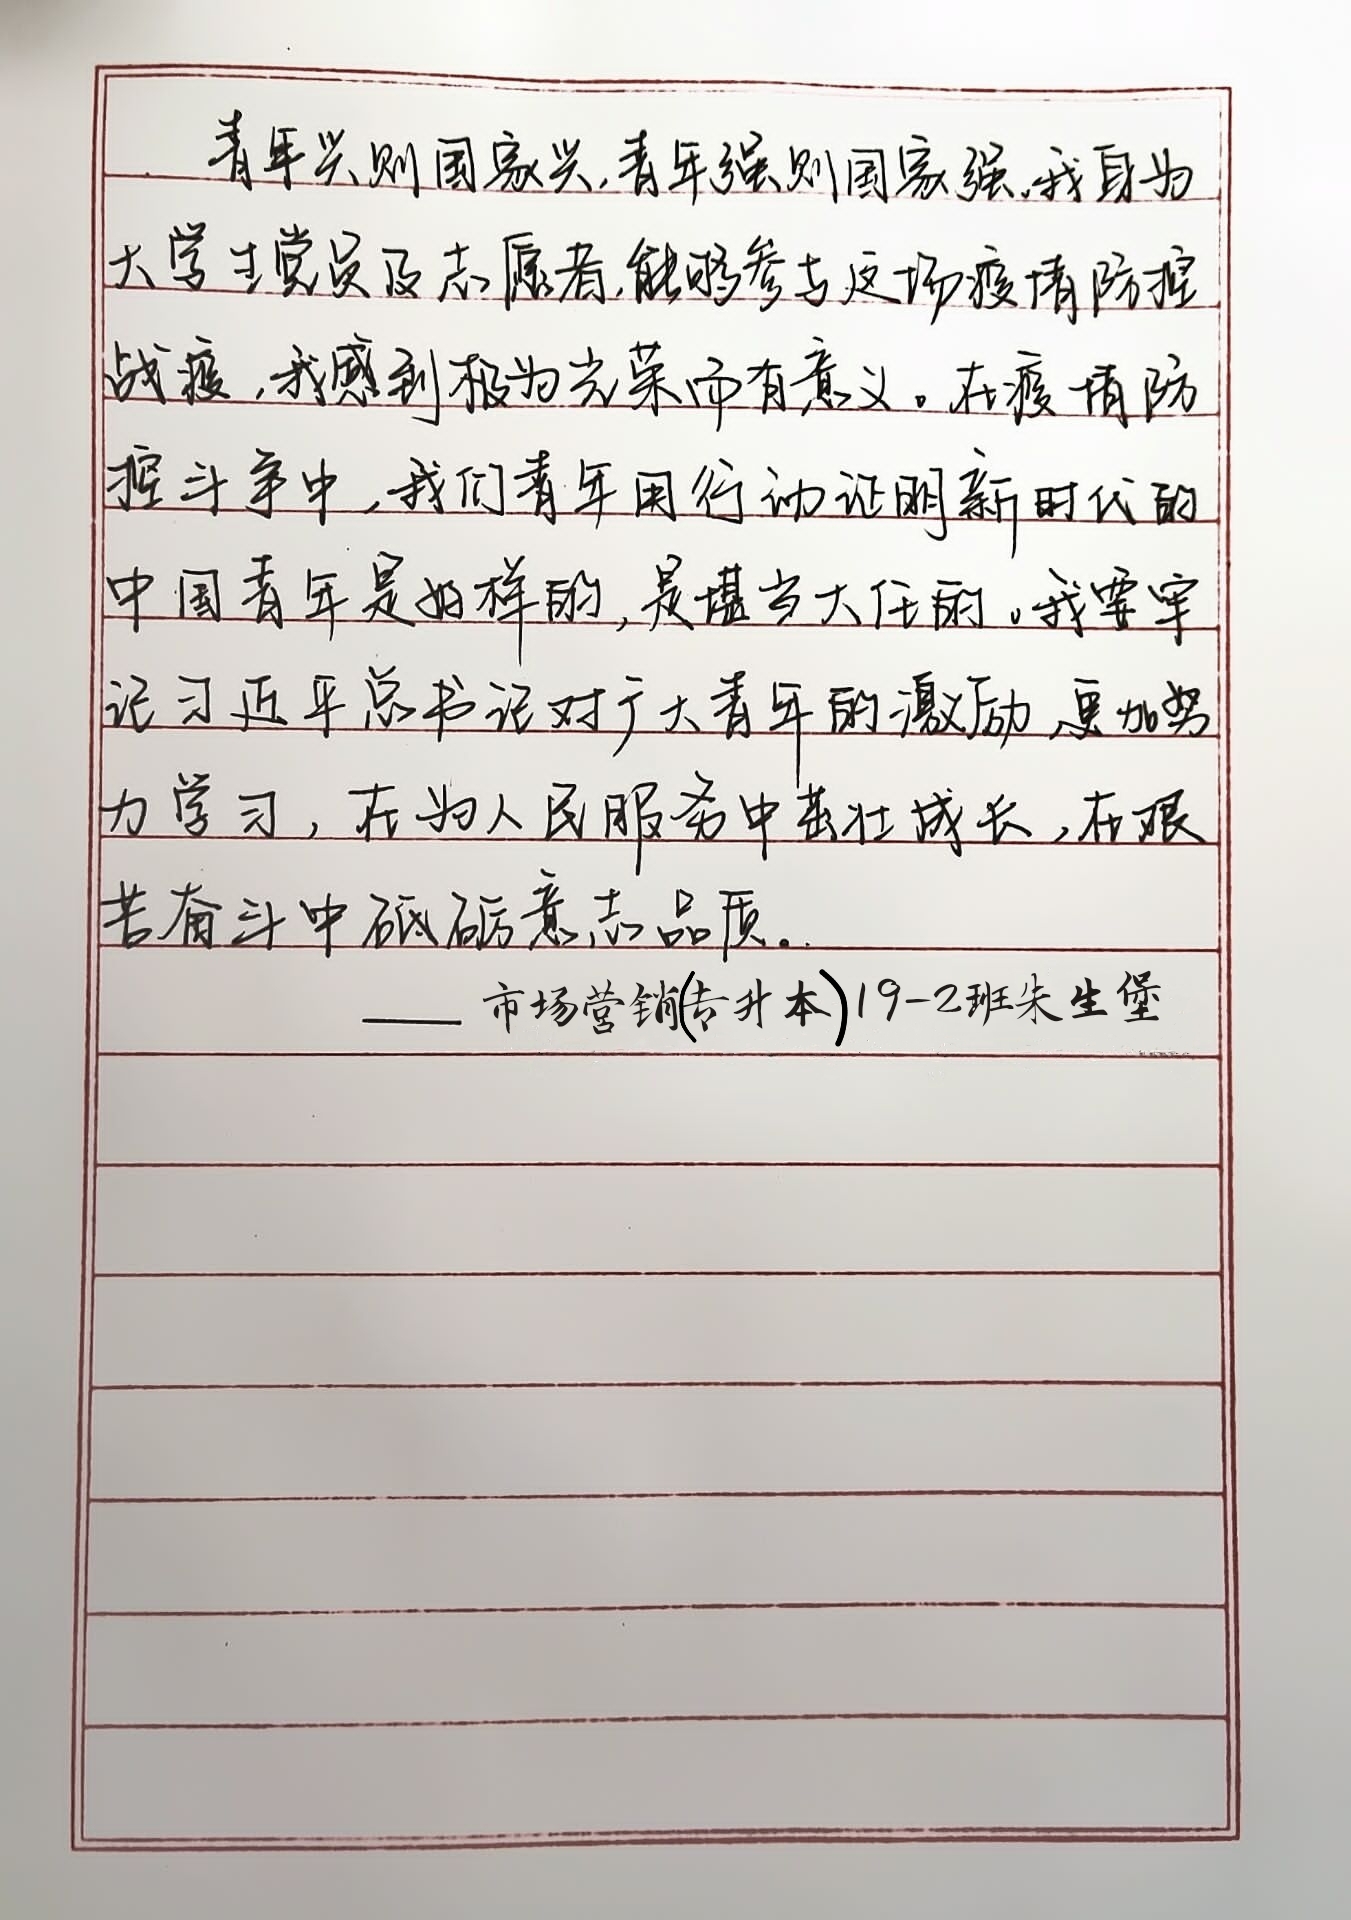 青年兴则国家兴，青年强则国家强。我身为
大学生党员及志愿者，能够参与这场疫情防控
战疫，我感到极为光荣而有意义。在疫情防
控斗争中，我们青年用行动证明新时代的
中国青年是好样的，是堪当大任的。我要牢
记习近平总书记对广大青年的激励，更加努
力学习，在为人民服务中茁壮成长，在艰
苦奋斗中砥砺意志品质。
——市场营销(专升本)19-2班朱生堡